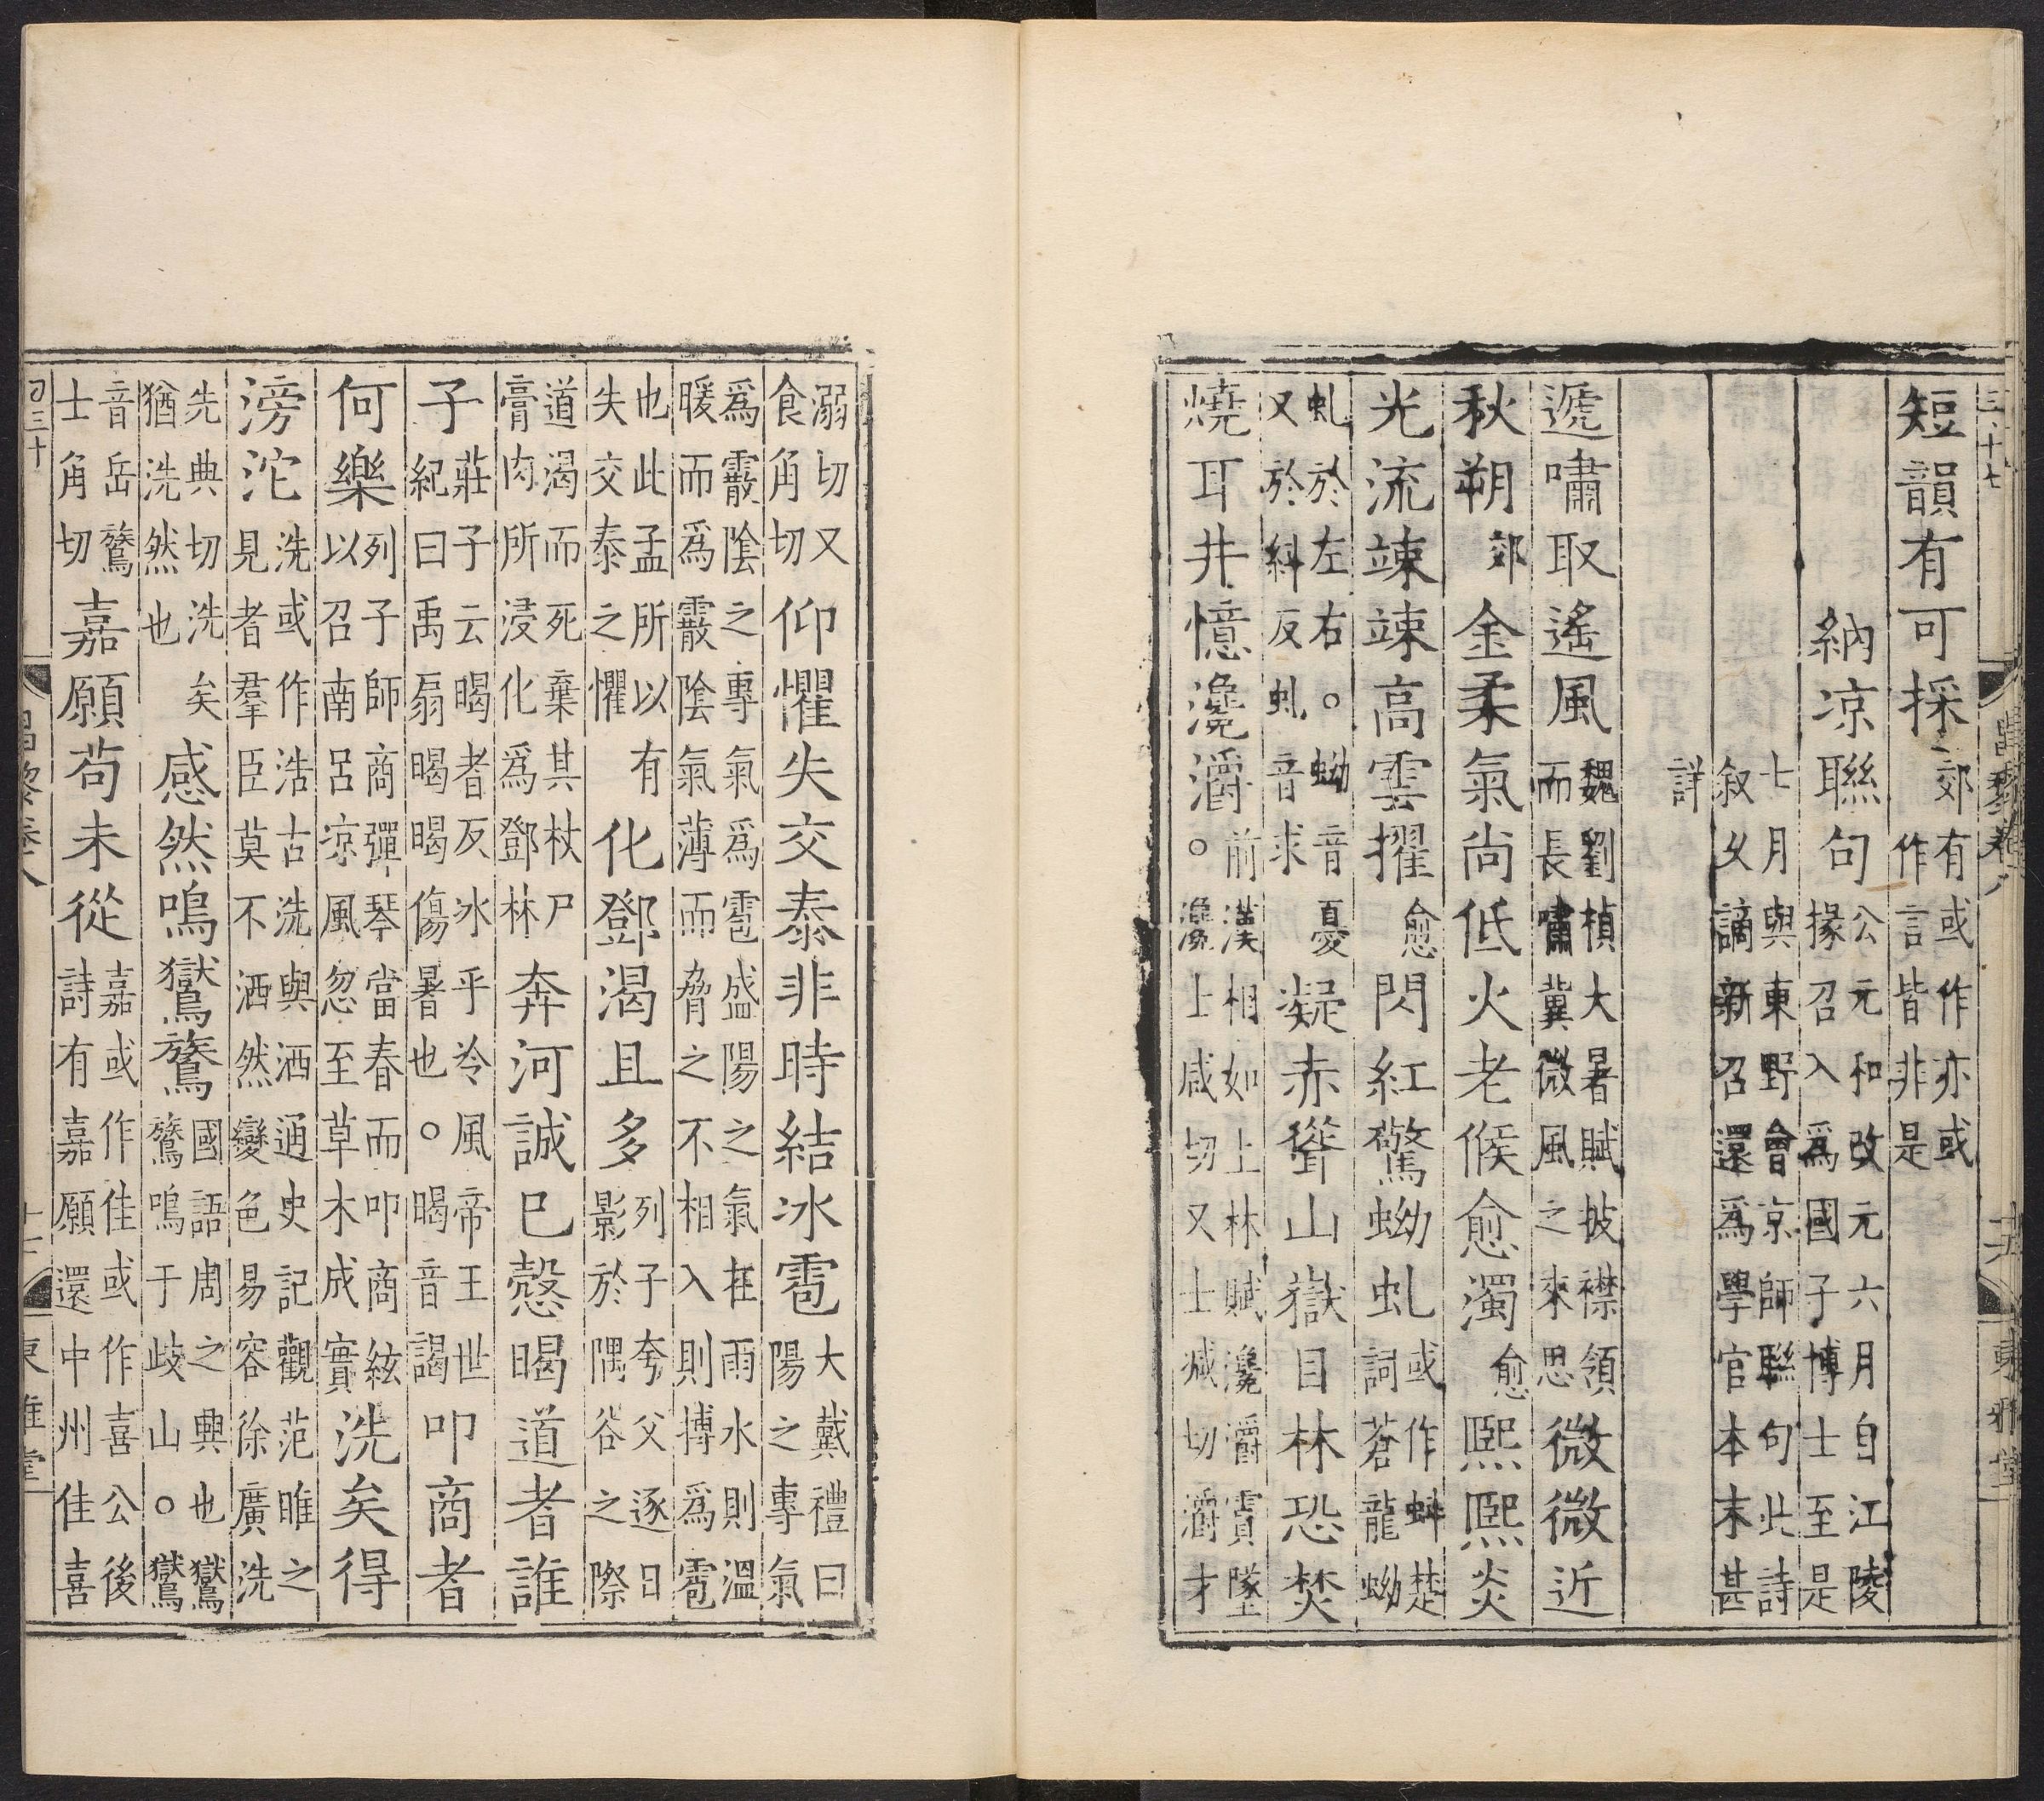 三十七 昌黎卷八 十六 東雅堂
短韻有可採郊有或作亦或作言皆非是
納凉聯句公元和改元六月自江陵掾召入爲國子博士至是
七月與東野會京師聯句此詩叙女謫新召還爲學官本末甚
詳
遞嘯取遙風魏劉楨大暑賦披襟領而長嘯冀微風之來思微微近
秋朔郊金柔氣尚低火老候愈濁愈熙熙炎
光流竦竦高雲擢愈閃紅驚蚴虬或作蚪楚詞蒼龍蚴
虬於左右。蚴音憂又於糾反虬音求凝赤聳山嶽目林恐焚
燒耳井憶瀺灂。前漢相如上林賦瀺灂霣墜瀺士咸切又士減切灂才
溺切又食角切仰懼失交泰非時結冰雹大戴禮曰陽之專氣
爲霰陰之專氣爲雹盛陽之氣在雨水則溫暖而爲霰陰氣薄而脅之不相入則摶爲雹
也此孟所以有失交泰之懼化鄧渴且多列子夸父逐日影於隅谷之際
道渴而死棄其杖尸膏肉所浸化爲鄧林奔河誠已愨暍道者誰
子莊子云暍者反冰乎冷風帝王世紀曰禹扇暍暍傷暑也。暍音謁叩商者
何樂列子師商彈琴當春而叩商絃以召南呂凉風忽至草木成實洗矣得
滂沱洗或作浩古洗與洒通史記觀范睢之見者羣臣莫不洒然變色易容徐廣洗
先典切洗矣猶洗然也感然鳴鸑鷟國語周之興也鸑鷟鳴于歧山。鸑
音岳鷟士角切嘉願茍未從嘉或作佳或作喜公後詩有嘉願還中州佳喜
昌黎卷八 東雅堂